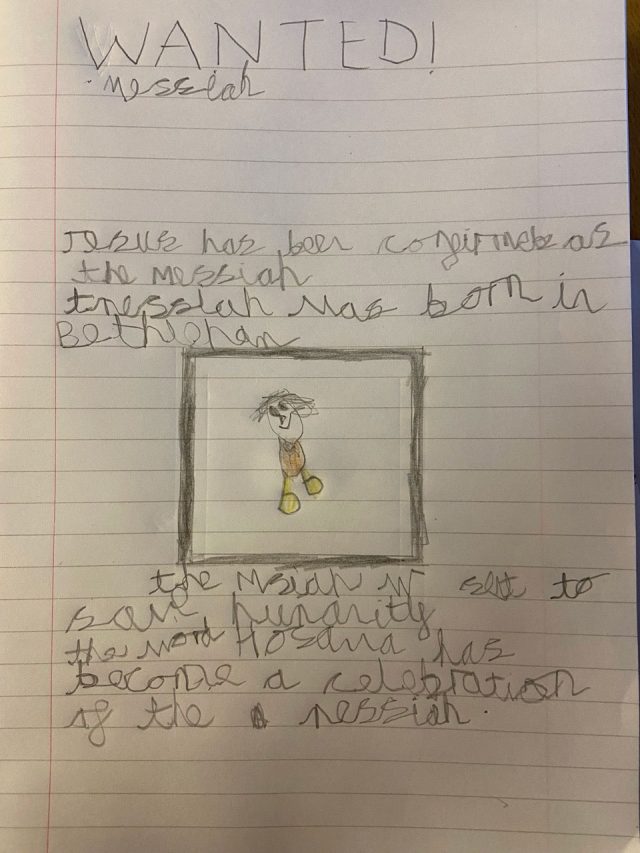 WANTED!
Messiah
Jesus has been confirmeb as
the Messiah
was born in
Bethlehan
the to
save humanity
the word Hosana has
become a celebration
of the messiah.